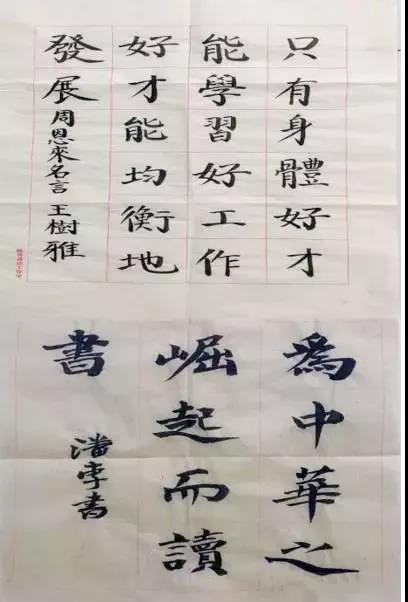 只有身體好才
能學習好工作
好才能均衡地
發展周恩來名言 王樹雅
爲中華之
崛起而讀
書 潘李書